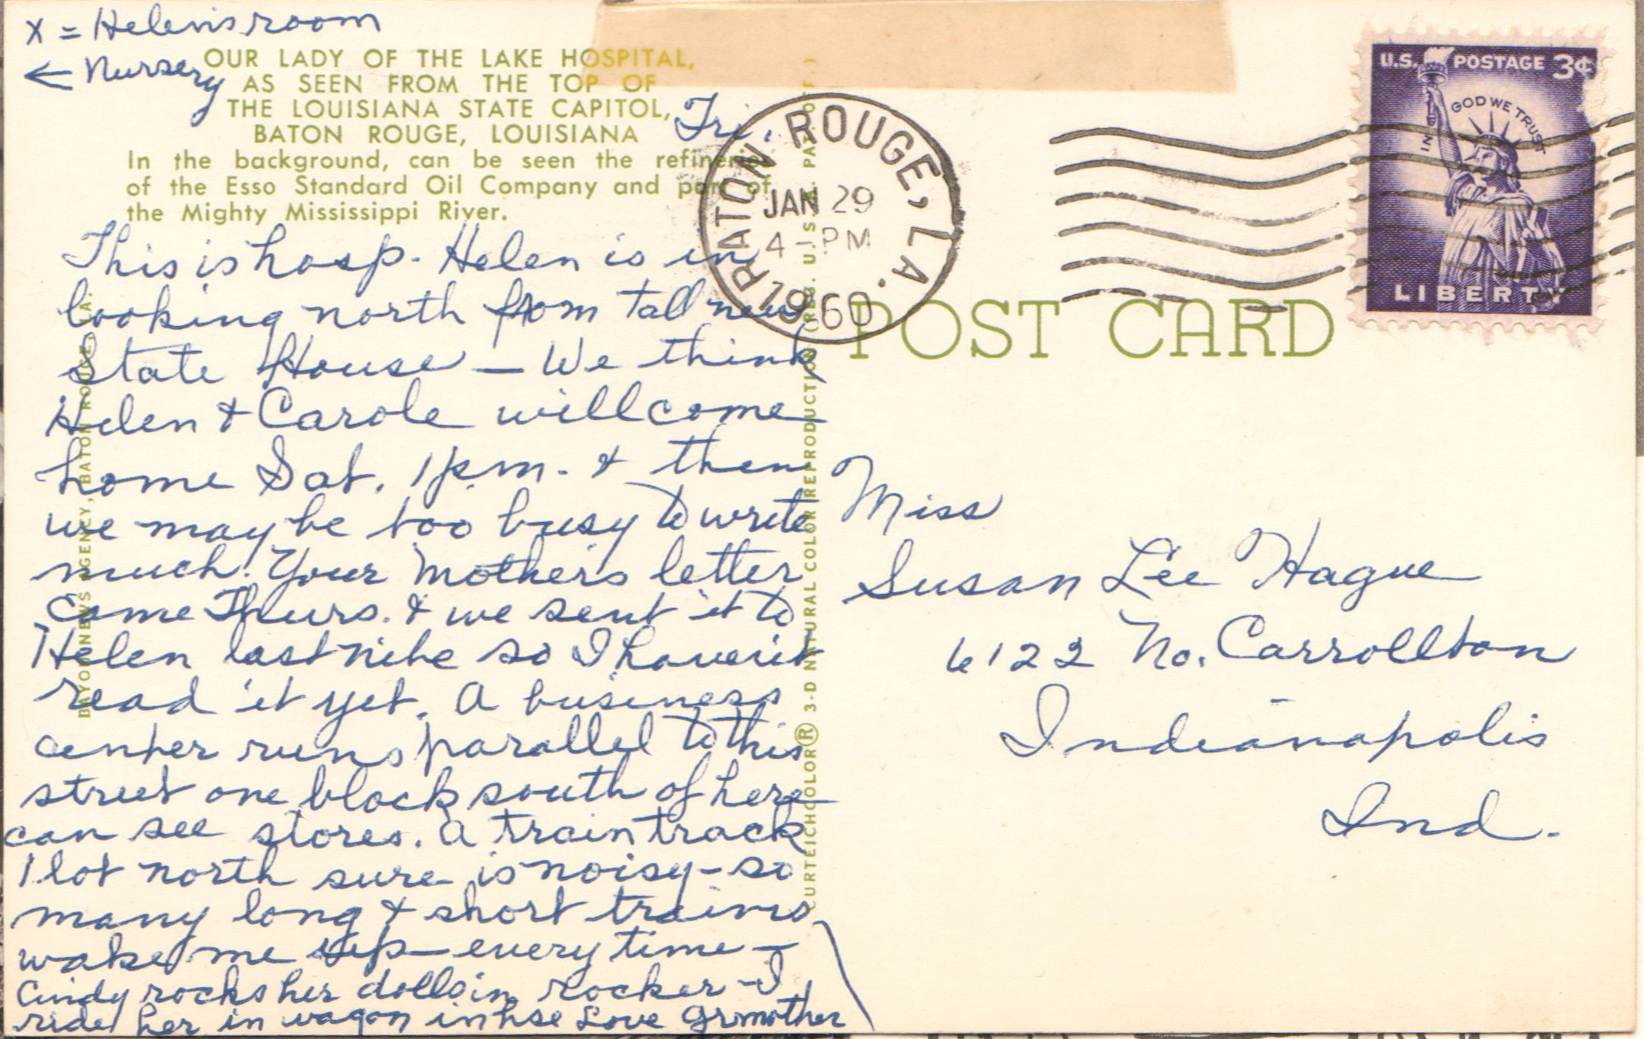 x = Helen's room
← Nursery
OUR LADY OF THE LAKE HOSPITAL,
AS SEEN FROM THE TOP OF
THE LOUISIANA STATE CAPITOL,
BATON ROUGE, LOUISIANA
In the background, can be seen the refineries
of the Esso Standard Oil Company and part of
the Mighty Mississippi River.
Fri.
This is hosp. Helen is in
looking north from tall new
State House — We think
Helen & Carole will come
home Sat. 1 p.m. & then
we may be too busy to write
much. Your Mother's letter
came Thurs. & we sent it to
Helen last nite so I haven't
read it yet. A business
center runs parallel to this
street one block south of here
can see stores. A train track
1 lot north sure is noisy - so
many long & short trains
wake me up - every time -
Cindy rocks her dolls in rocker - I
ride her in wagon in hse Love Grmother
BATON ROUGE, LA.
JAN 29
4 - PM
1960
U.S. POSTAGE 3¢
IN GOD WE TRUST
LIBERTY
POST CARD
Miss
Susan Lee Hague
6122 No. Carrollton
Indianapolis
Ind.
BAYOU NEWS AGENCY, BATON ROUGE, LA.
CURTEICHCOLOR® 3-D NATURAL COLOR REPRODUCTION (REG. U.S. PAT. OFF.)